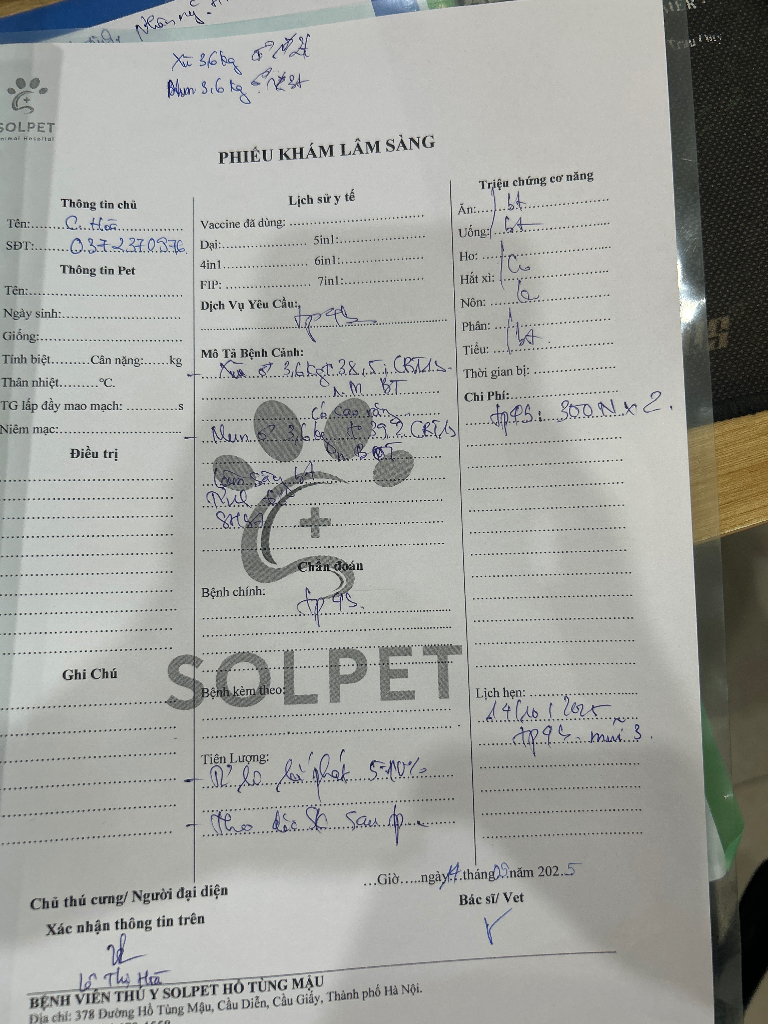 Xu 3,6kg ♂
Mun 3,6kg
SOLPET
Animal Hospital
PHIẾU KHÁM LÂM SÀNG
Thông tin chủ
Tên: C. Hoà
SĐT: 0372370976
Thông tin Pet
Tên:
Ngày sinh:
Giống:
Tính biệt Cân nặng: kg
Thân nhiệt °C.
TG lấp đầy mao mạch: s
Niêm mạc:
Điều trị
Ghi Chú
Lịch sử y tế
Vaccine đã dùng:
Dại: 5in1:
4in1 6in1:
FIP: 7in1:
Dịch Vụ Yêu Cầu:
tp 4S
Mô Tả Bệnh Cảnh:
- Xu ♂ 3,6kg t 38,5; CRT1s
NM BT
Có cao răng
- Mun ♂ 3,6kg t 39,2 CRT1s
BT
Lâm sàng bt
Chẩn đoán
Bệnh chính:
tp 4S.
SOLPET
Bệnh kèm theo:
Tiên Lượng:
5-10%
- Theo dõi SK sau tp
Triệu chứng cơ năng
Ăn: bt
Uống: bt
Ho:
Hắt xì:
Nôn:
Phân:
Tiểu: bt
Thời gian bị:
Chi Phí:
tp 4S: 300N x 2.
Lịch hẹn:
14/10/2025
tp 4S mũi 3.
Giờ ngày 14 tháng 09 năm 2025
Chủ thú cưng/ Người đại diện
Xác nhận thông tin trên
Bác sĩ/ Vet
Lê Thị Hoà
BỆNH VIỆN THÚ Y SOLPET HỒ TÙNG MẬU
Địa chỉ: 378 Đường Hồ Tùng Mậu, Cầu Diễn, Cầu Giấy, Thành phố Hà Nội.